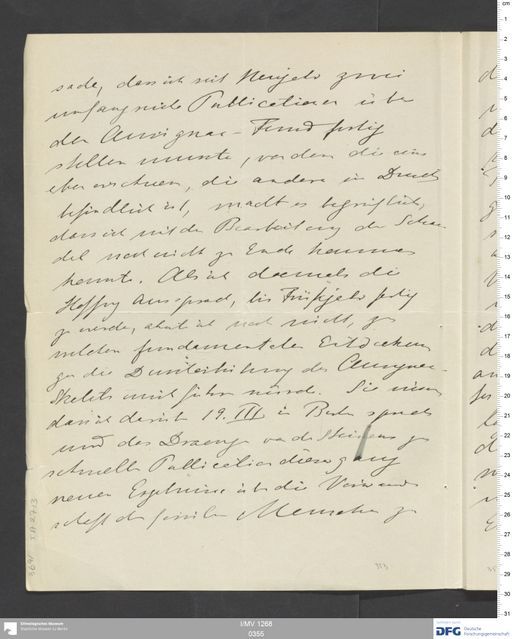 sache, dass ich seit Neujahr zwei
umfangreiche Publicationen über
den Aurignac-Fund fertig
stellen musste, von denen die eine
eben erschienen, die andere im Druck
befindlich ist, macht es begreiflich,
dass ich mit der Bearbeitung der Schä-
del noch nicht zu Ende kommen
konnte. Als ich damals die
Hoffng aussprach, bis Frühjahr fertig
zu werden, ahnte ich noch nicht, zu
welchen fundamentalen Entdeckun-
gen die Durcharbeitung des Aurignac-
Skelets mich führen würde. Sie wissen
dass ich darüber 19. III in Berlin sprach
und das Drängen von den Steinens zu
schneller Publication dieser ganz
neuen Ergebnisse über die Verwand-
schaft der fossilen Menschen zu
313
I/MV 1268
0355
Ethnologisches Museum
Staatliche Museen zu Berlin
DFG Deutsche
Forschungsgemeinschaft